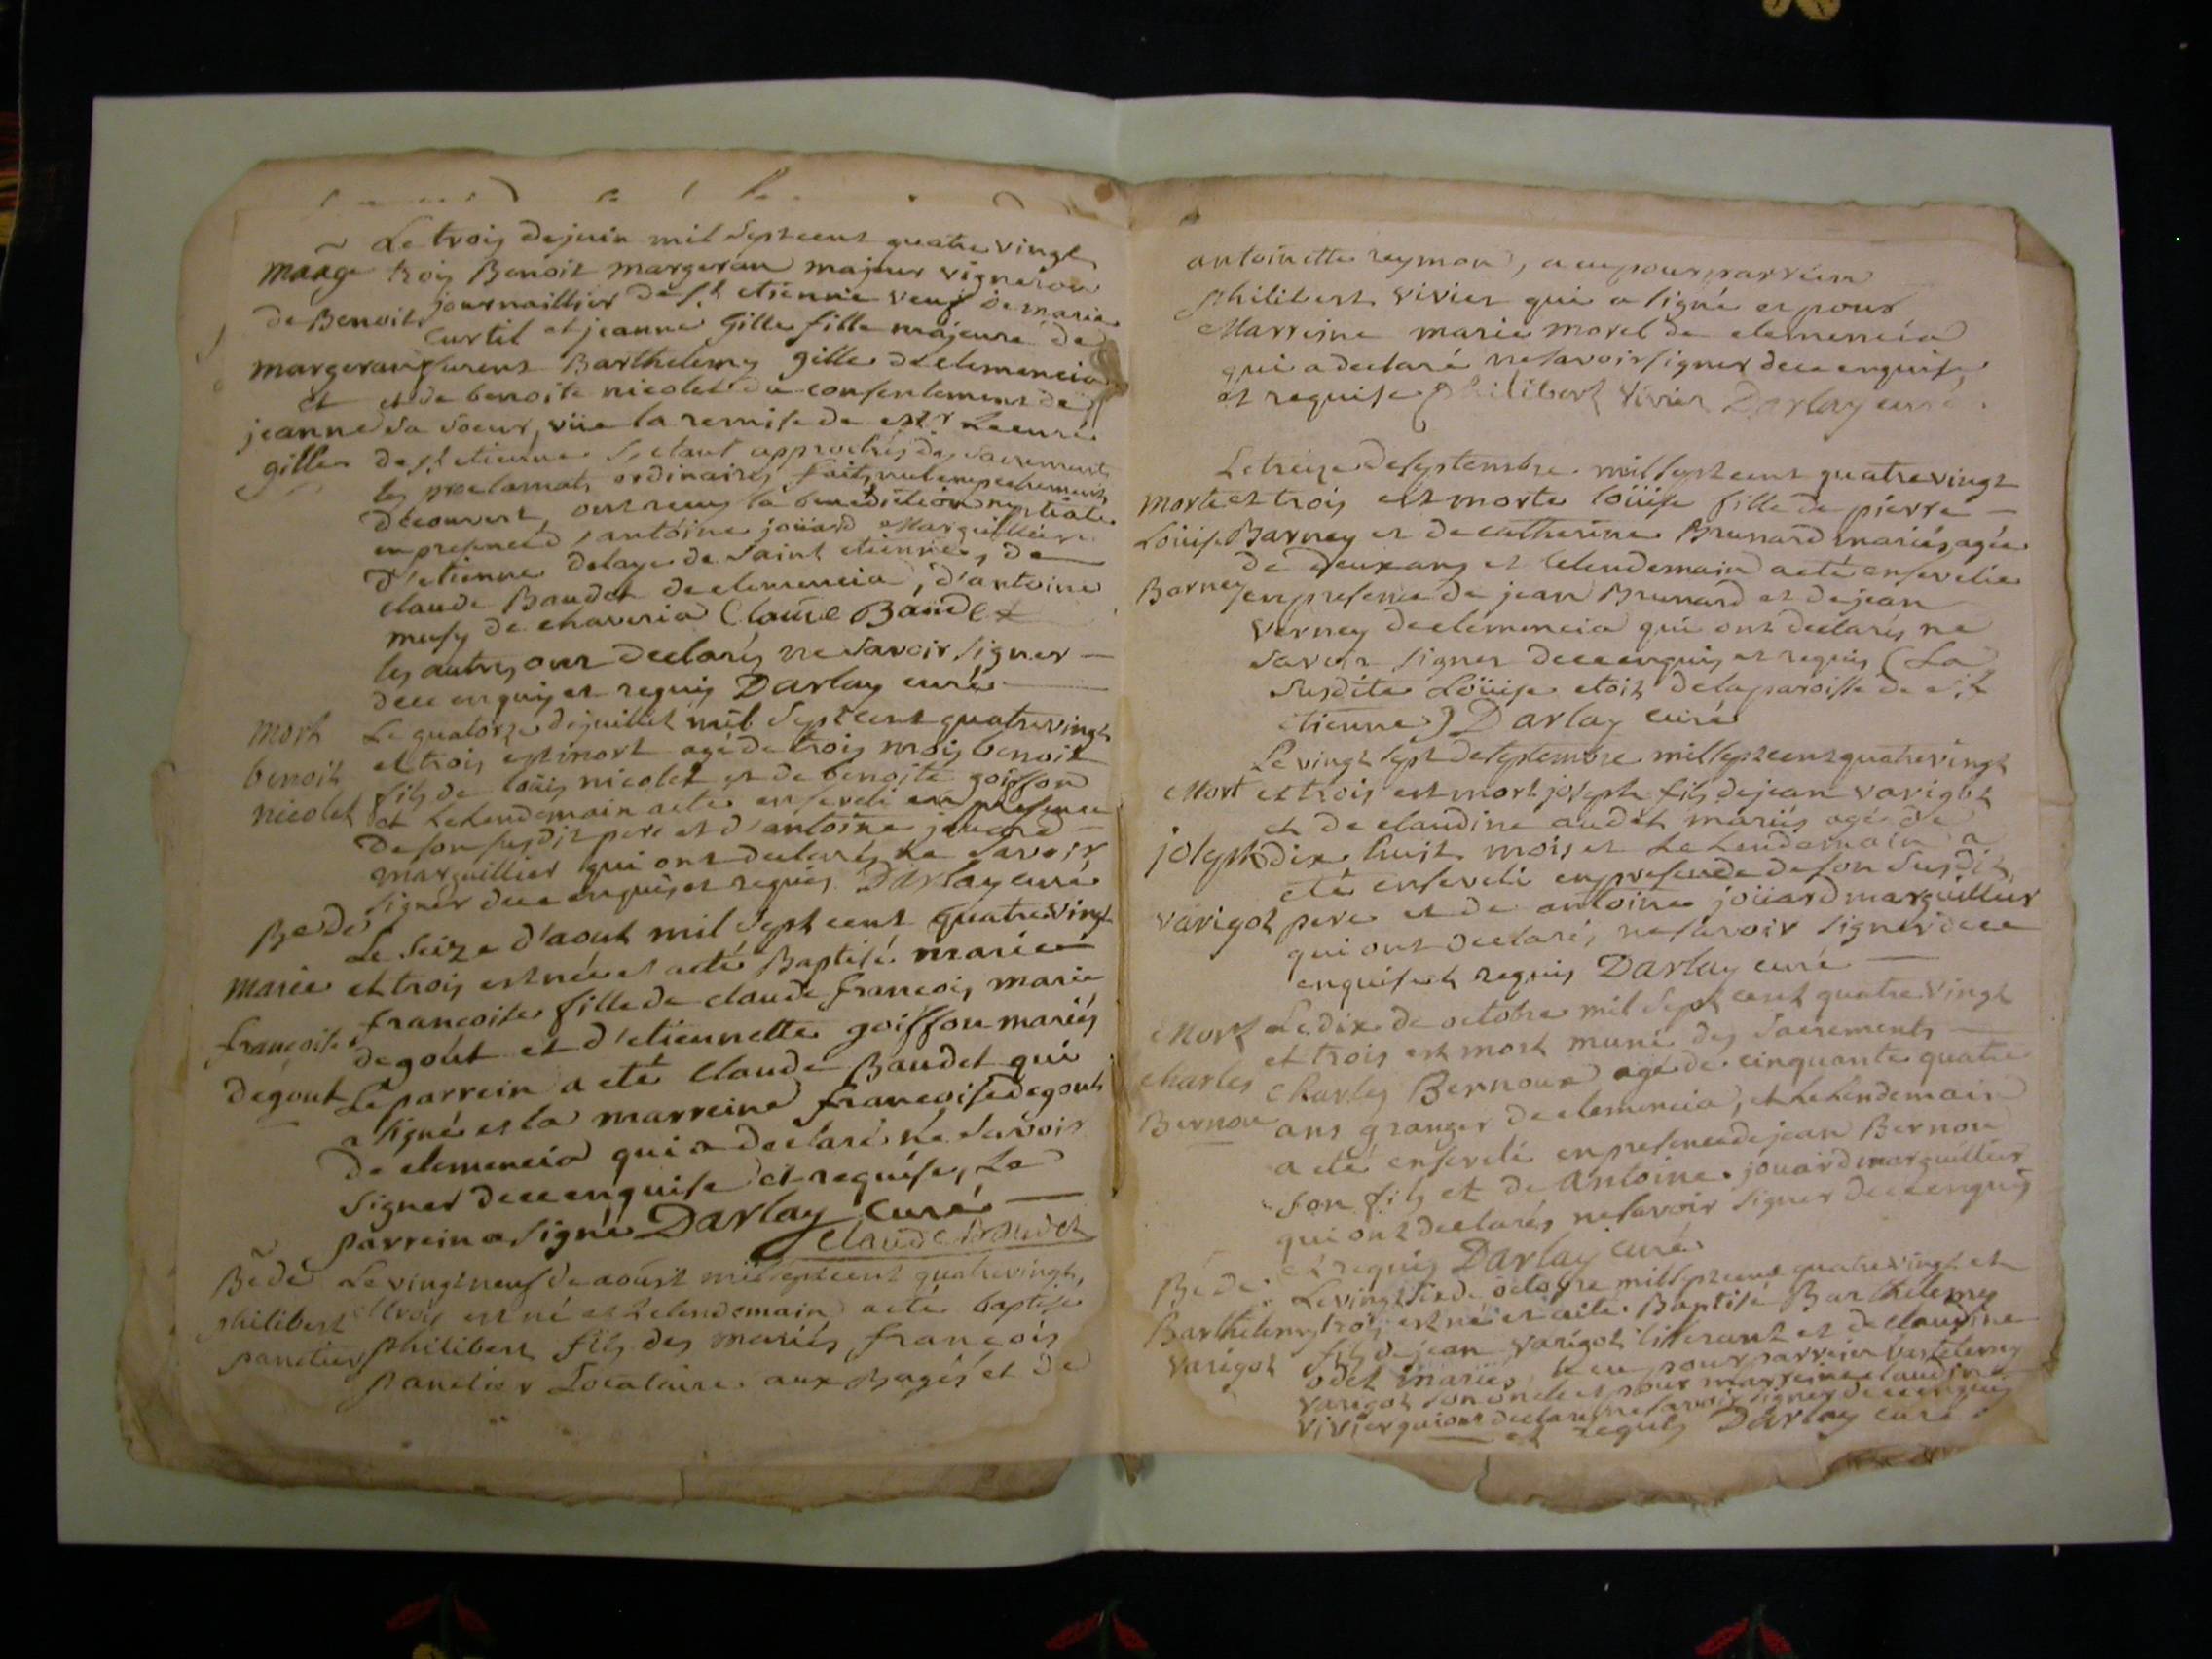 Le trois de juin mil sept cent quatre vingt
mãage trois Benoit margeran majeur vigneron
de Benoit journaillier de st etienne veuf de marie
Curtil et jeanne Gille fille majeure de
margeran furent Barthelemy gille de clemencia
et et de benoite nicolet du consentement de
jeanne sa soeur, vüe la remise de mr le curé
gille de st etienne s'etant approchés des sacrements
les proclamats ordinaires faits, nul empechement
découvert, ont reçu la benediction nuptiale
en presence d'antoine joüard Marguillier
d'etienne delaye de saint etienne, de
claude Baudet de clemencia, d'antoine
musy de chaveria Claude Baudet
les autres ont declarés ne savoir signer —
de ce enquis et requis Darlay curé
mort Le quatorze de juillet mil sept cent quatre vingt
benoit et trois est mort agé de trois mois benoit
nicolet fils de loüis nicolet et de benoite goiffon
et le lendemain a eté enseveli en presence
de son susdit pere et d'antoine jouard —
marguillier qui ont declarés ne savoir
signer de ce enquis et requis Darlay curé
Bẽ de Le seize d'aout mil sept cent quatre vingt
marie et trois est née et a eté Baptisé marie
francoise francoise fille de claude francois marie
degout degout et d'etiennette goiffon mariés
Le parrein a eté Claude Baudet qui
a signé et la marreine francoise degout
de clemencia qui a declaré ne savoir
signer de ce enquise et requise, Le
parrein a signé Darlay Curé
Claude Baudet
Bẽ de Le vingt neuf de aoust mil sept cent quatre vingt,
philibert et trois est né et le lendemain a eté baptisé
panetier philibert fils des mariés françois
panetier Locataire aux pagés et de
antoinette reymon, a eu pour parrein
philibert vivier qui a signé et pour
Marreine marie morel de clemencia
qui a declaré ne savoir signer de ce enquise
et requise Philibert Vivier Darlay curé.
Le treize de septembre mil sept cent quatre vingt
morte et trois est morte loüise fille de pierre —
Loüise Barney et de catherine Brunard mariés, agée
de deux ans et le lendemain a eté ensevelie
Barney en presence de jean Brunard et de jean
Verney de clemencia qui ont declarés ne
savoir signer de ce enquis et requis (La
susdite Loüise etoit de la paroisse de st
etienne) Darlay curé
Le vingt sept de septembre mil sept cent quatre vingt
Mort et trois est mort joseph fils de jean varigot
et de claudine audet mariés agé de
joseph dix huit mois et le lendemain a
eté enseveli en presence de son susdit,
varigot pere et de antoine joüard marguillier
qui ont declaré, ne savoir signer de ce
enquis et requis Darlay curé —
Mort Le dix de octobre mil sept cent quatre vingt
et trois est mort muni des sacrements —
charles Charles Bernoux agé de cinquante quatre
Bernou ans granger de clemencia, et le lendemain
a eté enseveli en presence de jean Bernou
son fils et de antoine jouard marguillier
qui ont declarés ne savoir signer de ce enquis
et requis Darlay curé
Bẽ de: Le vingt six de octobre mil sept cent quatre vingt et
Barthelemy trois est né et a eté Baptisé Barthelemy
varigot fils de jean varigot tisserant et de claudine
odet mariés, a eu pour parrein bartelemy
varigot son oncle et pour marreine claudine
vivier qui ont declaré ne savoir signer de ce enquis
et requis Darlay curé.